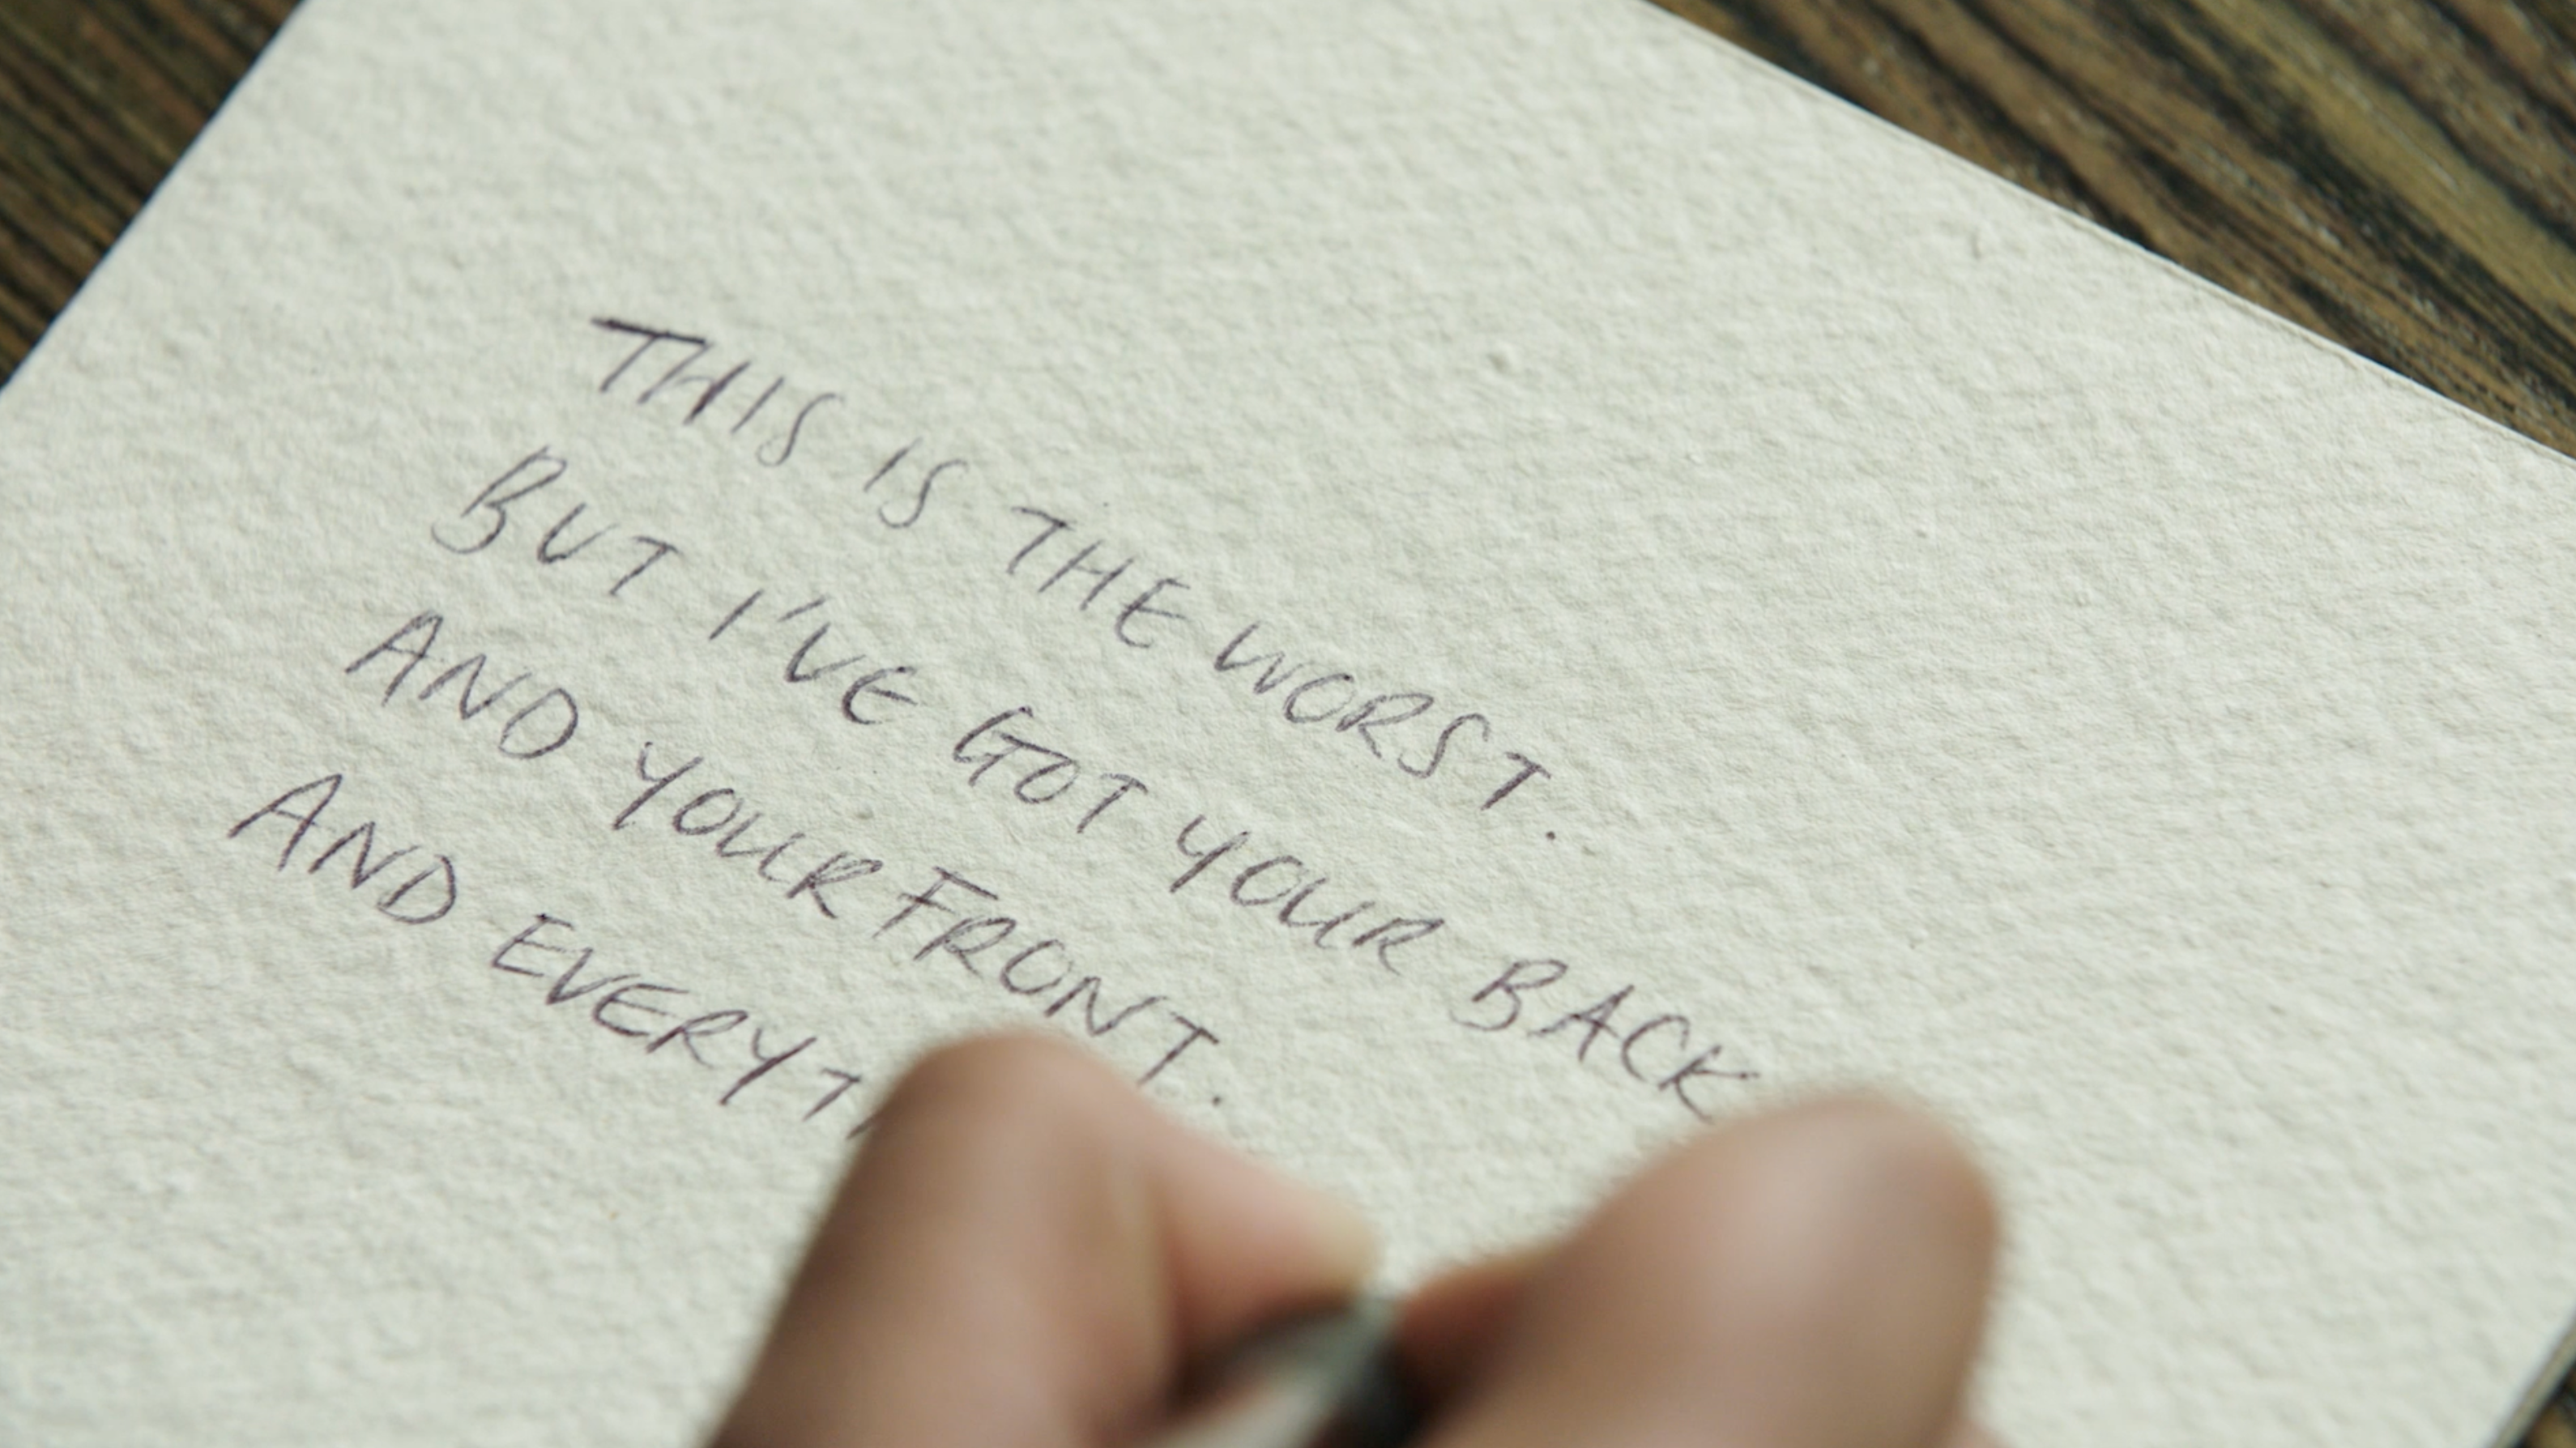 THIS IS THE WORST.
BUT I'VE GOT YOUR BACK
AND YOUR FRONT.
AND